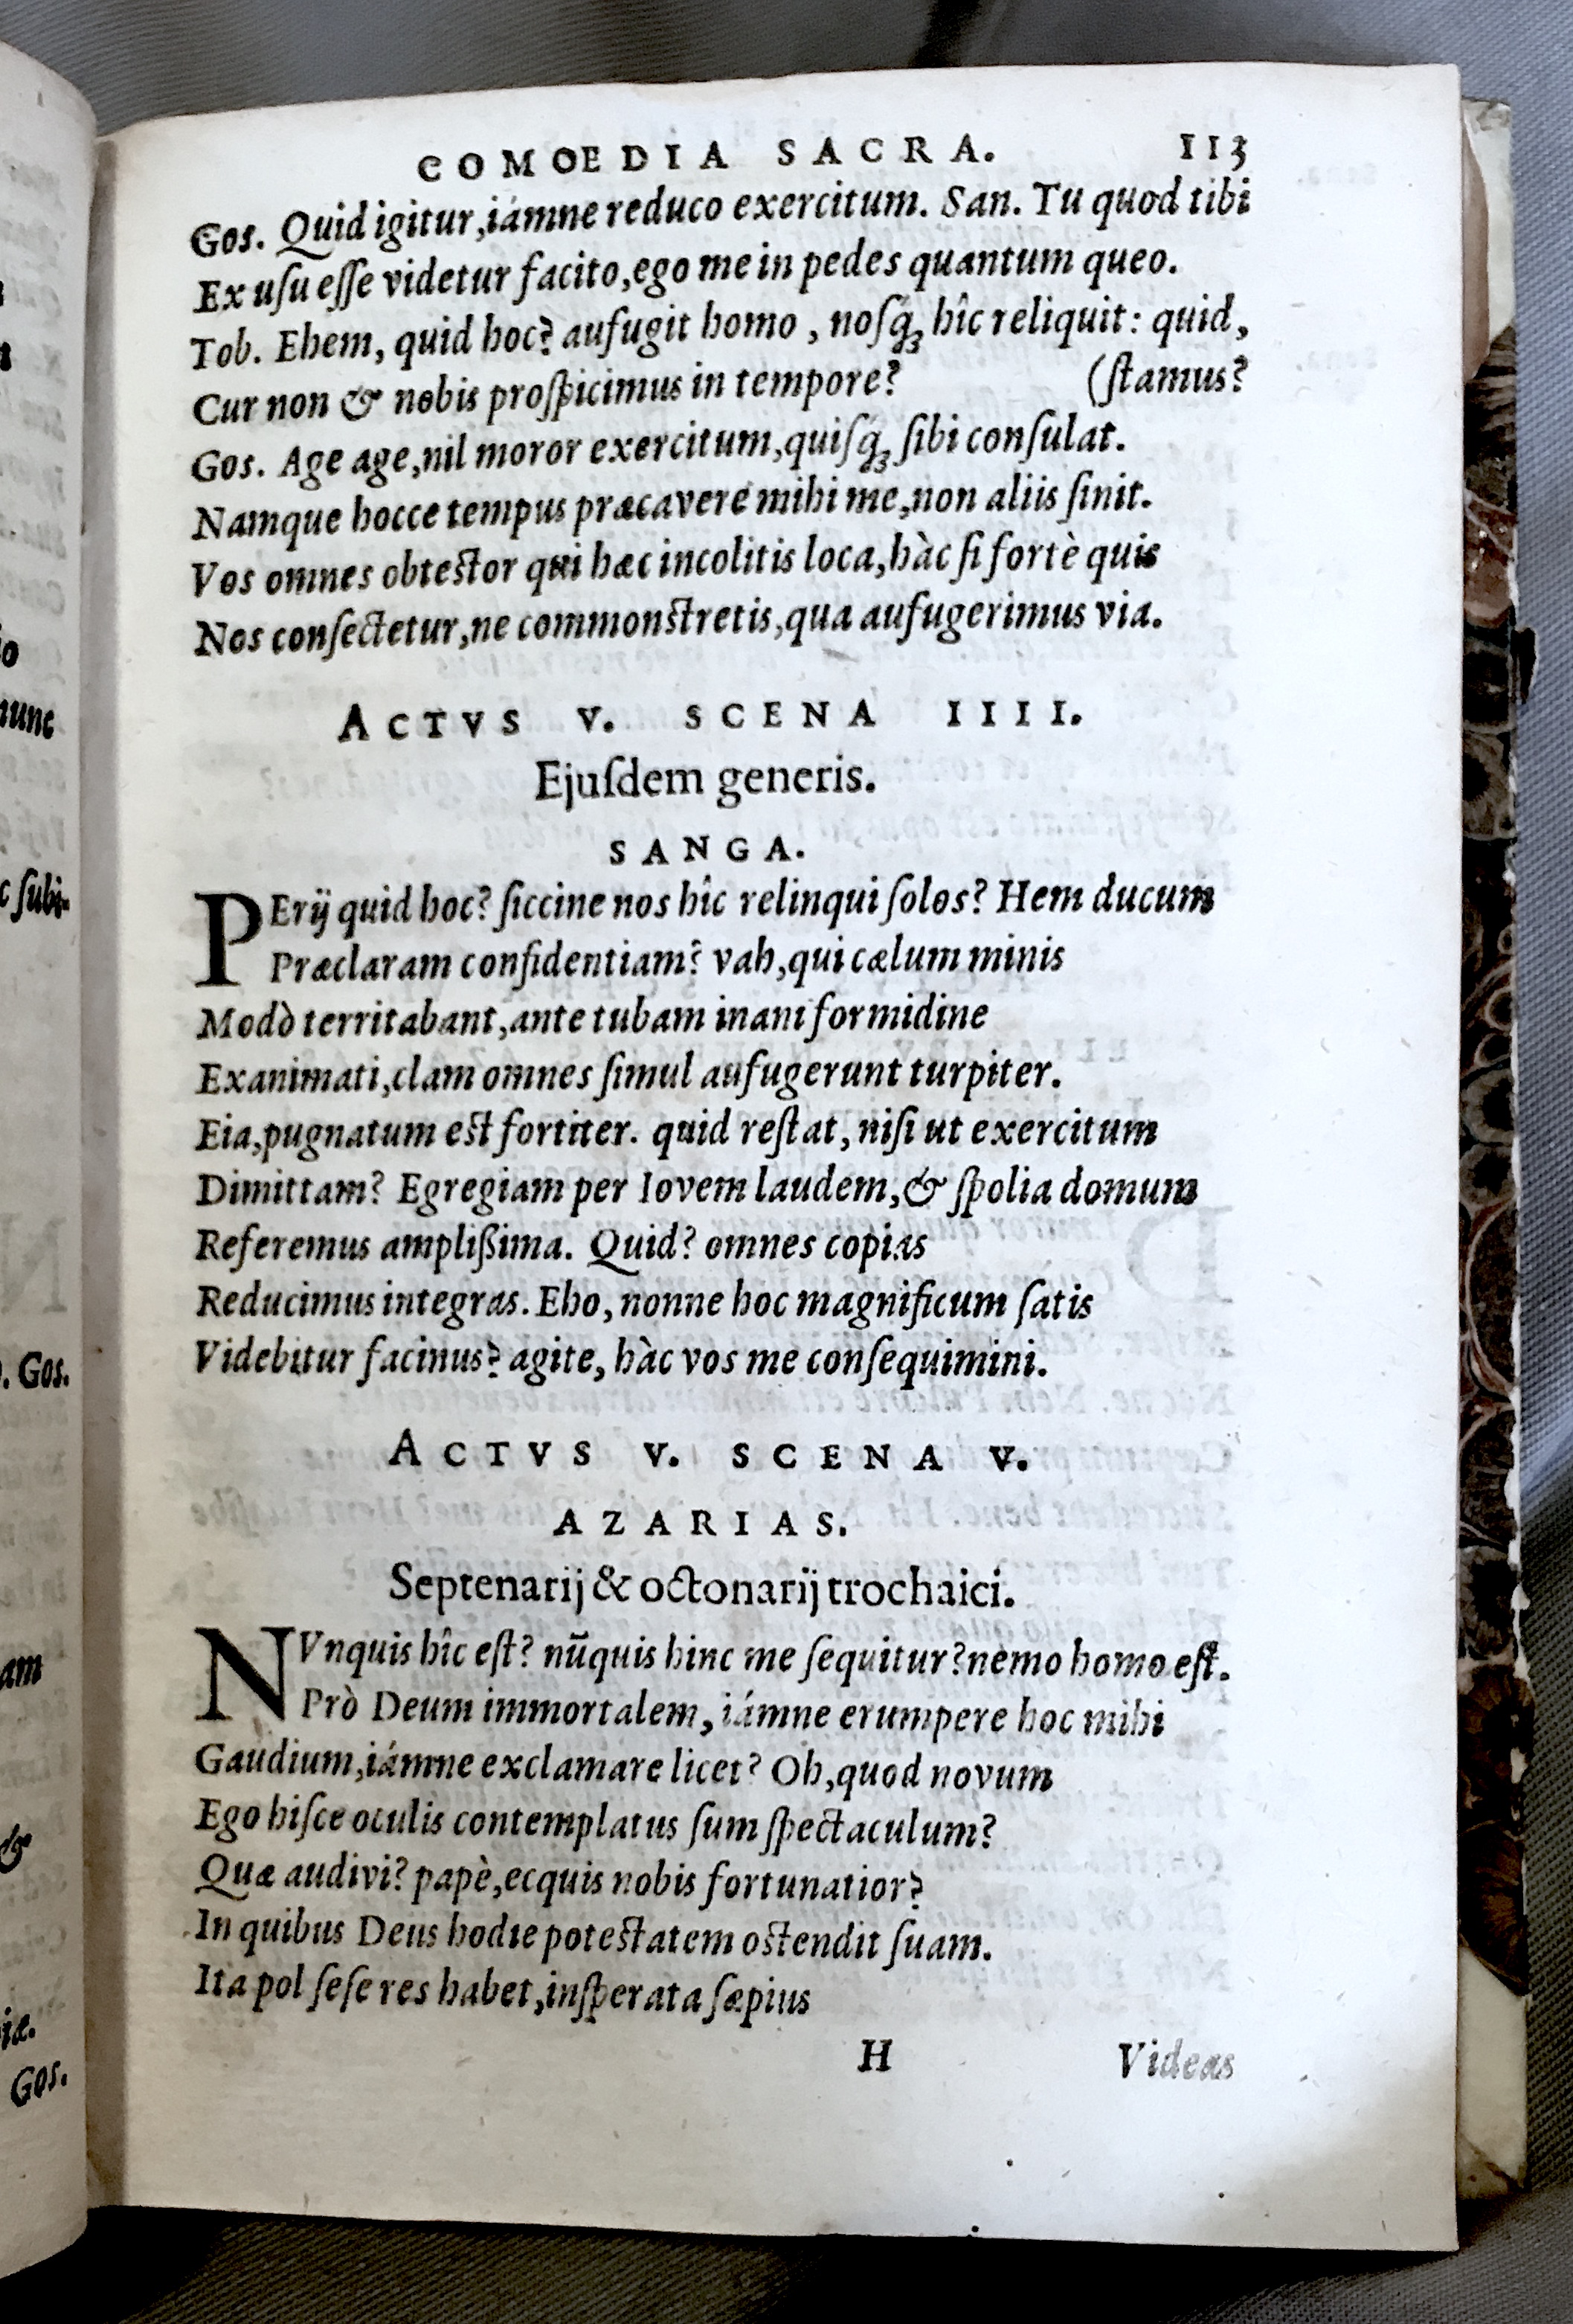 COMOEDIA SACRA. 113
Gos. Quid igitur, iámne reduco exercitum. San. Tu quod tibi
Ex uſu eſſe videtur facito, ego me in pedes quantum queo.
Tob. Ehem, quid hoc? aufugit homo, noſq́; hîc reliquit: quid,
Cur non & nobis proſpicimus in tempore? (ſtamus?
Gos. Age age, nil moror exercitum, quiſq́; ſibi conſulat.
Namque hocce tempus præcavere mihi me, non aliis ſinit.
Vos omnes obteſtor qui hæc incolitis loca, hàc ſi fortè quis
Nos conſectetur, ne commonſtretis, qua aufugerimus via.
ACTVS V. SCENA IIII.
Ejuſdem generis.
SANGA.
PErij quid hoc? ſiccine nos hîc relinqui ſolos? Hem ducum
Præclaram confidentiam? vah, qui cælum minis
Modò territabant, ante tubam inani formidine
Exanimati, clam omnes ſimul aufugerunt turpiter.
Eia, pugnatum eſt fortiter. quid reſtat, niſi ut exercitum
Dimittam? Egregiam per Iovem laudem, & ſpolia domum
Referemus ampliſsima. Quid? omnes copias
Reducimus integras. Eho, nonne hoc magnificum ſatis
Videbitur facinus? agite, hàc vos me conſequimini.
ACTVS V. SCENA V.
AZARIAS.
Septenarij & octonarij trochaici.
NVnquis hîc eſt? nūquis hinc me ſequitur? nemo homo eſt.
Prò Deum immortalem, iámne erumpere hoc mihi
Gaudium, iámne exclamare licet? Oh, quod novum
Ego hiſce oculis contemplatus ſum ſpectaculum?
Quæ audivi? papè, ecquis nobis fortunatior?
In quibus Deus hodie poteſtatem oſtendit ſuam.
Ita pol ſeſe res habet, inſperata ſæpius
H Videas